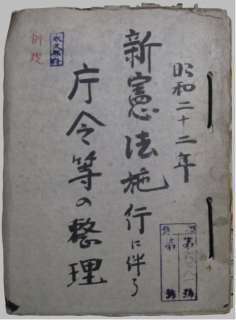 昭和二十二年
新憲法施行に伴う
庁令等の整理
永久保存
例規